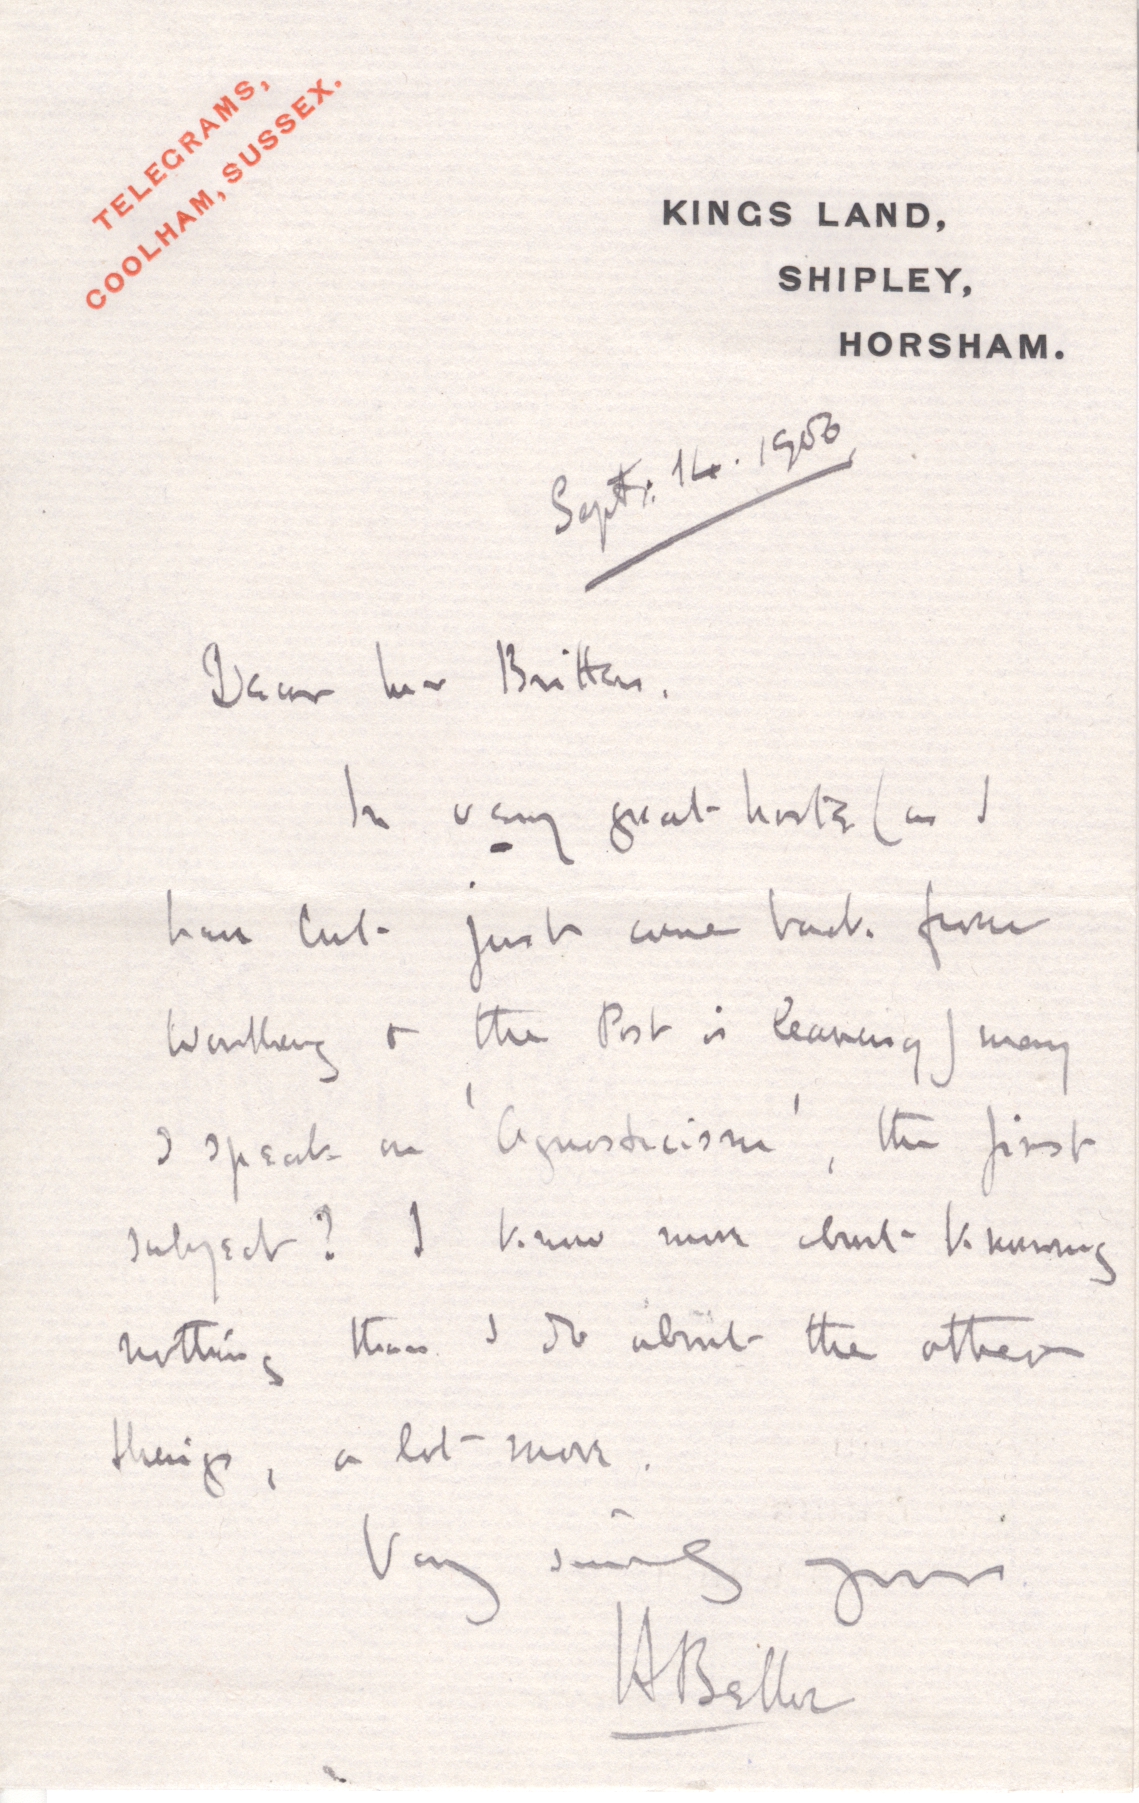 TELEGRAMS,
COOLHAM, SUSSEX.
KINGS LAND,
SHIPLEY,
HORSHAM.
Sept. 14. 190
Dear Mr Britten.
In very great haste (as I
have but just come back from
Worthing & the Post is leaving) may
I speak on 'Agnosticism', the first
subject? I know more about knowing
nothing than I do about the other
things, a lot more.
Very sincerely yours
H Belloc